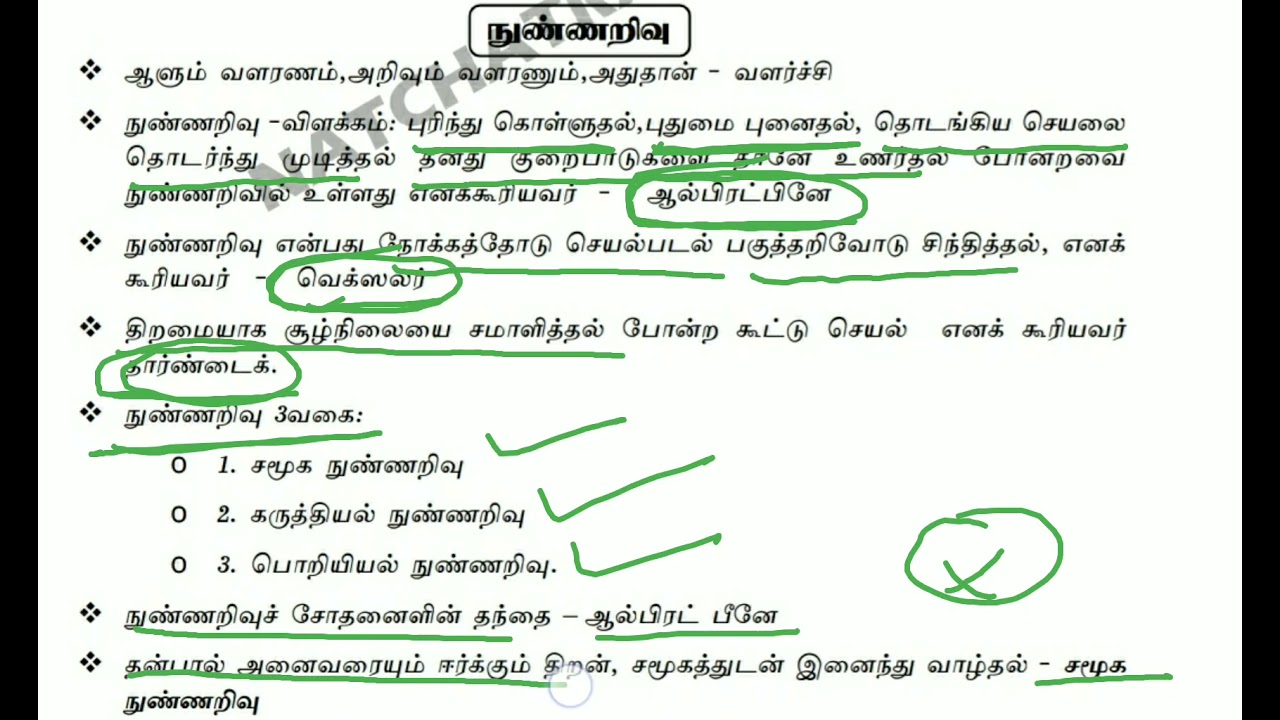 நுண்ணறிவு
❖ ஆளும் வளரணம்,அறிவும் வளரணும்,அதுதான் - வளர்ச்சி
❖ நுண்ணறிவு -விளக்கம்: புரிந்து கொள்ளுதல்,புதுமை புனைதல், தொடங்கிய செயலை
தொடர்ந்து முடித்தல் தனது குறைபாடுகளை தானே உணர்தல் போன்றவை
நுண்ணறிவில் உள்ளது எனக்கூரியவர் - ஆல்பிரட்பினே
❖ நுண்ணறிவு என்பது நோக்கத்தோடு செயல்படல் பகுத்தறிவோடு சிந்தித்தல், எனக்
கூரியவர் - வெக்ஸலர்
❖ திறமையாக சூழ்நிலையை சமாளித்தல் போன்ற கூட்டு செயல் எனக் கூரியவர்
தார்ண்டைக்.
❖ நுண்ணறிவு 3வகை:
O 1. சமூக நுண்ணறிவு
O 2. கருத்தியல் நுண்ணறிவு
O 3. பொறியியல் நுண்ணறிவு.
❖ நுண்ணறிவுச் சோதனைளின் தந்தை – ஆல்பிரட் பீனே
❖ தன்பால் அனைவரையும் ஈர்க்கும் திறன், சமூகத்துடன் இனைந்து வாழ்தல் - சமூக
நுண்ணறிவு